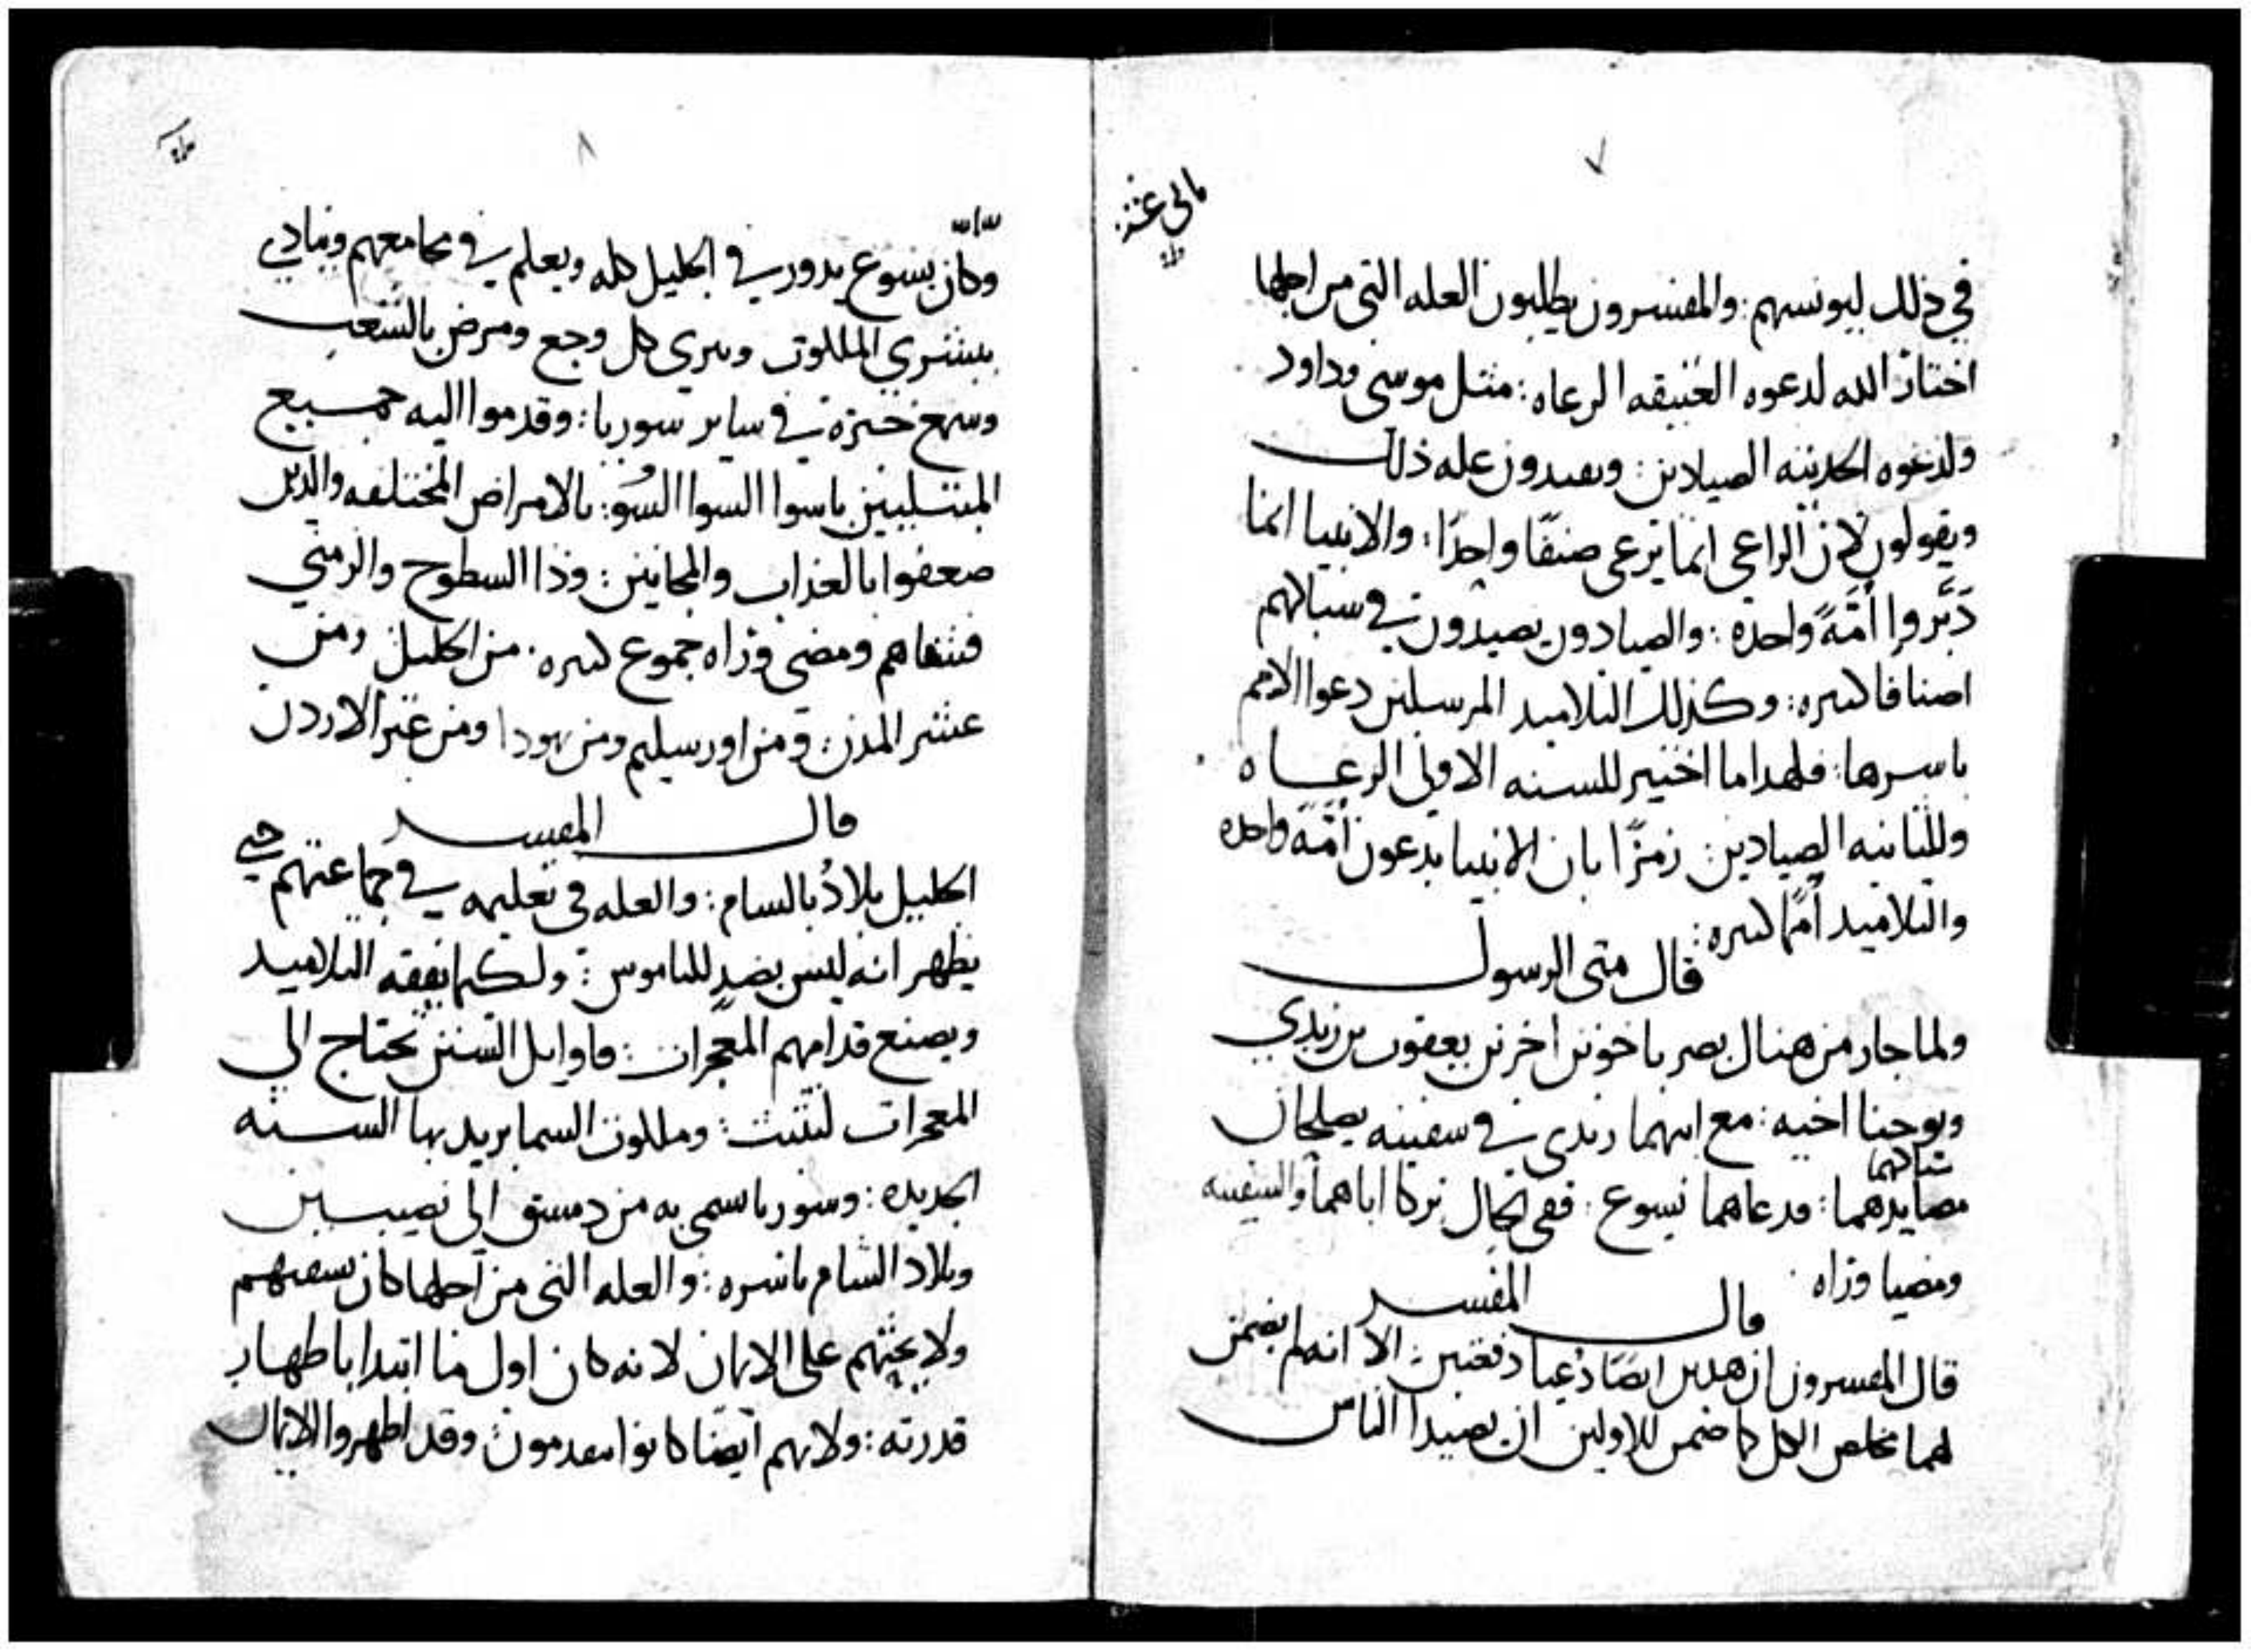 ٧
ثاني عشر
في ذلك ليونسهم: والمفسرون يطلبون العله التي من اجلها
اختار الله لدعوه العتيقه الرعاه: مثل موسى وداود
ولدعوه الحديثه الصيادين: ويفيدون عله ذلك
ويقولون لان الراعي انما يرعى صنفًا واحدًا: والانبيا انما
دَبَّروا أمَّةً واحده: والصيادون يصيدون في شباكهم
اصنافا كثيره: وكذلك التلاميد المرسلين دعوا الامم
باسرها: فلهدا ما اختير للسنه الاولى الرعاه
وللثانيه الصيادين: رمزًا بان الانبيا يدعون أمَّةً واحده
والتلاميد أممًا كثيره:
قال متى الرسول
ولما جاز من هناك بصر باخوين اخرين يعقوب بن زبدي
ويوحنا اخيه: مع ابيهما زبدى في سفينه يصلحان
شباكهما
مصايدهما: فدعاهما يسوع: ففي الحال تركا اباهما والسفينه
ومضيا وراه
قال المفسر
قال المفسرون ان هدين ايضًا دُعيا دفعتين: الا انه لم يضمن
لهما مخلص الكل كما ضمن للاولين ان يصيدا الناس
٨
وكان يسوع يدور في الجليل كله ويعلم في مجامعهم وينادي
ببشرى الملكوت ويبري كل وجع ومرض بالشعب
وسمع خبره في ساير سوريا: وقدموا اليه جميع
المبتليين باسوا السوا السُو: بالامراض المختلفه والدين
ضعفوا بالعذاب والمجانين: وذا السطوح والزمني
فشفاهم ومضى وراه جموع كثيره: من الجليل ومن
عشر المدن: ومن اورسليم ومن يهودا ومن عبر الاردن
قال المفسر
الجليل بلادُ بالسام: والعله في تعليمه في جماعتهم حتى
يظهر انه ليس بضدٍ للناموس: ولكيما يفقه التلاميد
ويصنع قدامهم المعجزات: فاوايل السنن تحتاج الى
المعجزات لتثبت: وملكوت السما يريد بها السنه
الجديده: وسوريا سمى به من دمسق الى نصيبين
وبلاد الشام باسره: والعله التي من اجلها كان يشفيهم
ولا يحثهم على الايمان لانه كان اول ما ابتدا باظهار
قدرته: ولانهم ايضًا كانوا يتقدمون وقد اظهروا الايمان